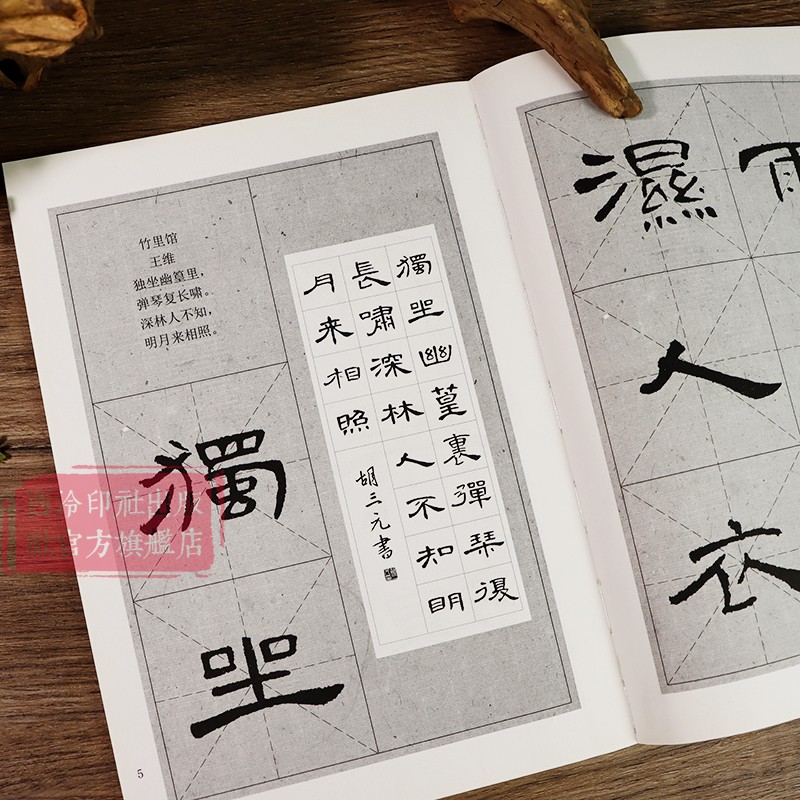 竹里馆
王维
独坐幽篁里，
弹琴复长啸。
深林人不知，
明月来相照。
獨坐幽篁裏彈琹復
長嘯深林人不知明
月来相照
胡三元書
獨
坐
5
雨
濕
人
衣
泠印社出版
社官方旗艦店